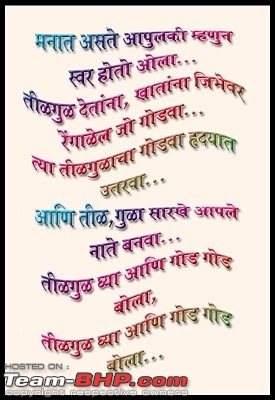 मनात असते आपुलकी म्हणुन
स्वर होतो ओला...
तीळगुळ देतांना, खातांना जिभेवर
रेंगाळेल जो गोडवा...
त्या तीळगुळाचा गोडवा हृदयात
उतरवा...
आणि तीळ,गुळा सारखे आपले
नाते बनवा...
तीळगुळ घ्या आणि गोड गोड
बोला,
तीळगुळ घ्या आणि गोड गोड
बोला...
HOSTED ON :
Team-BHP.com
copyright respective owners